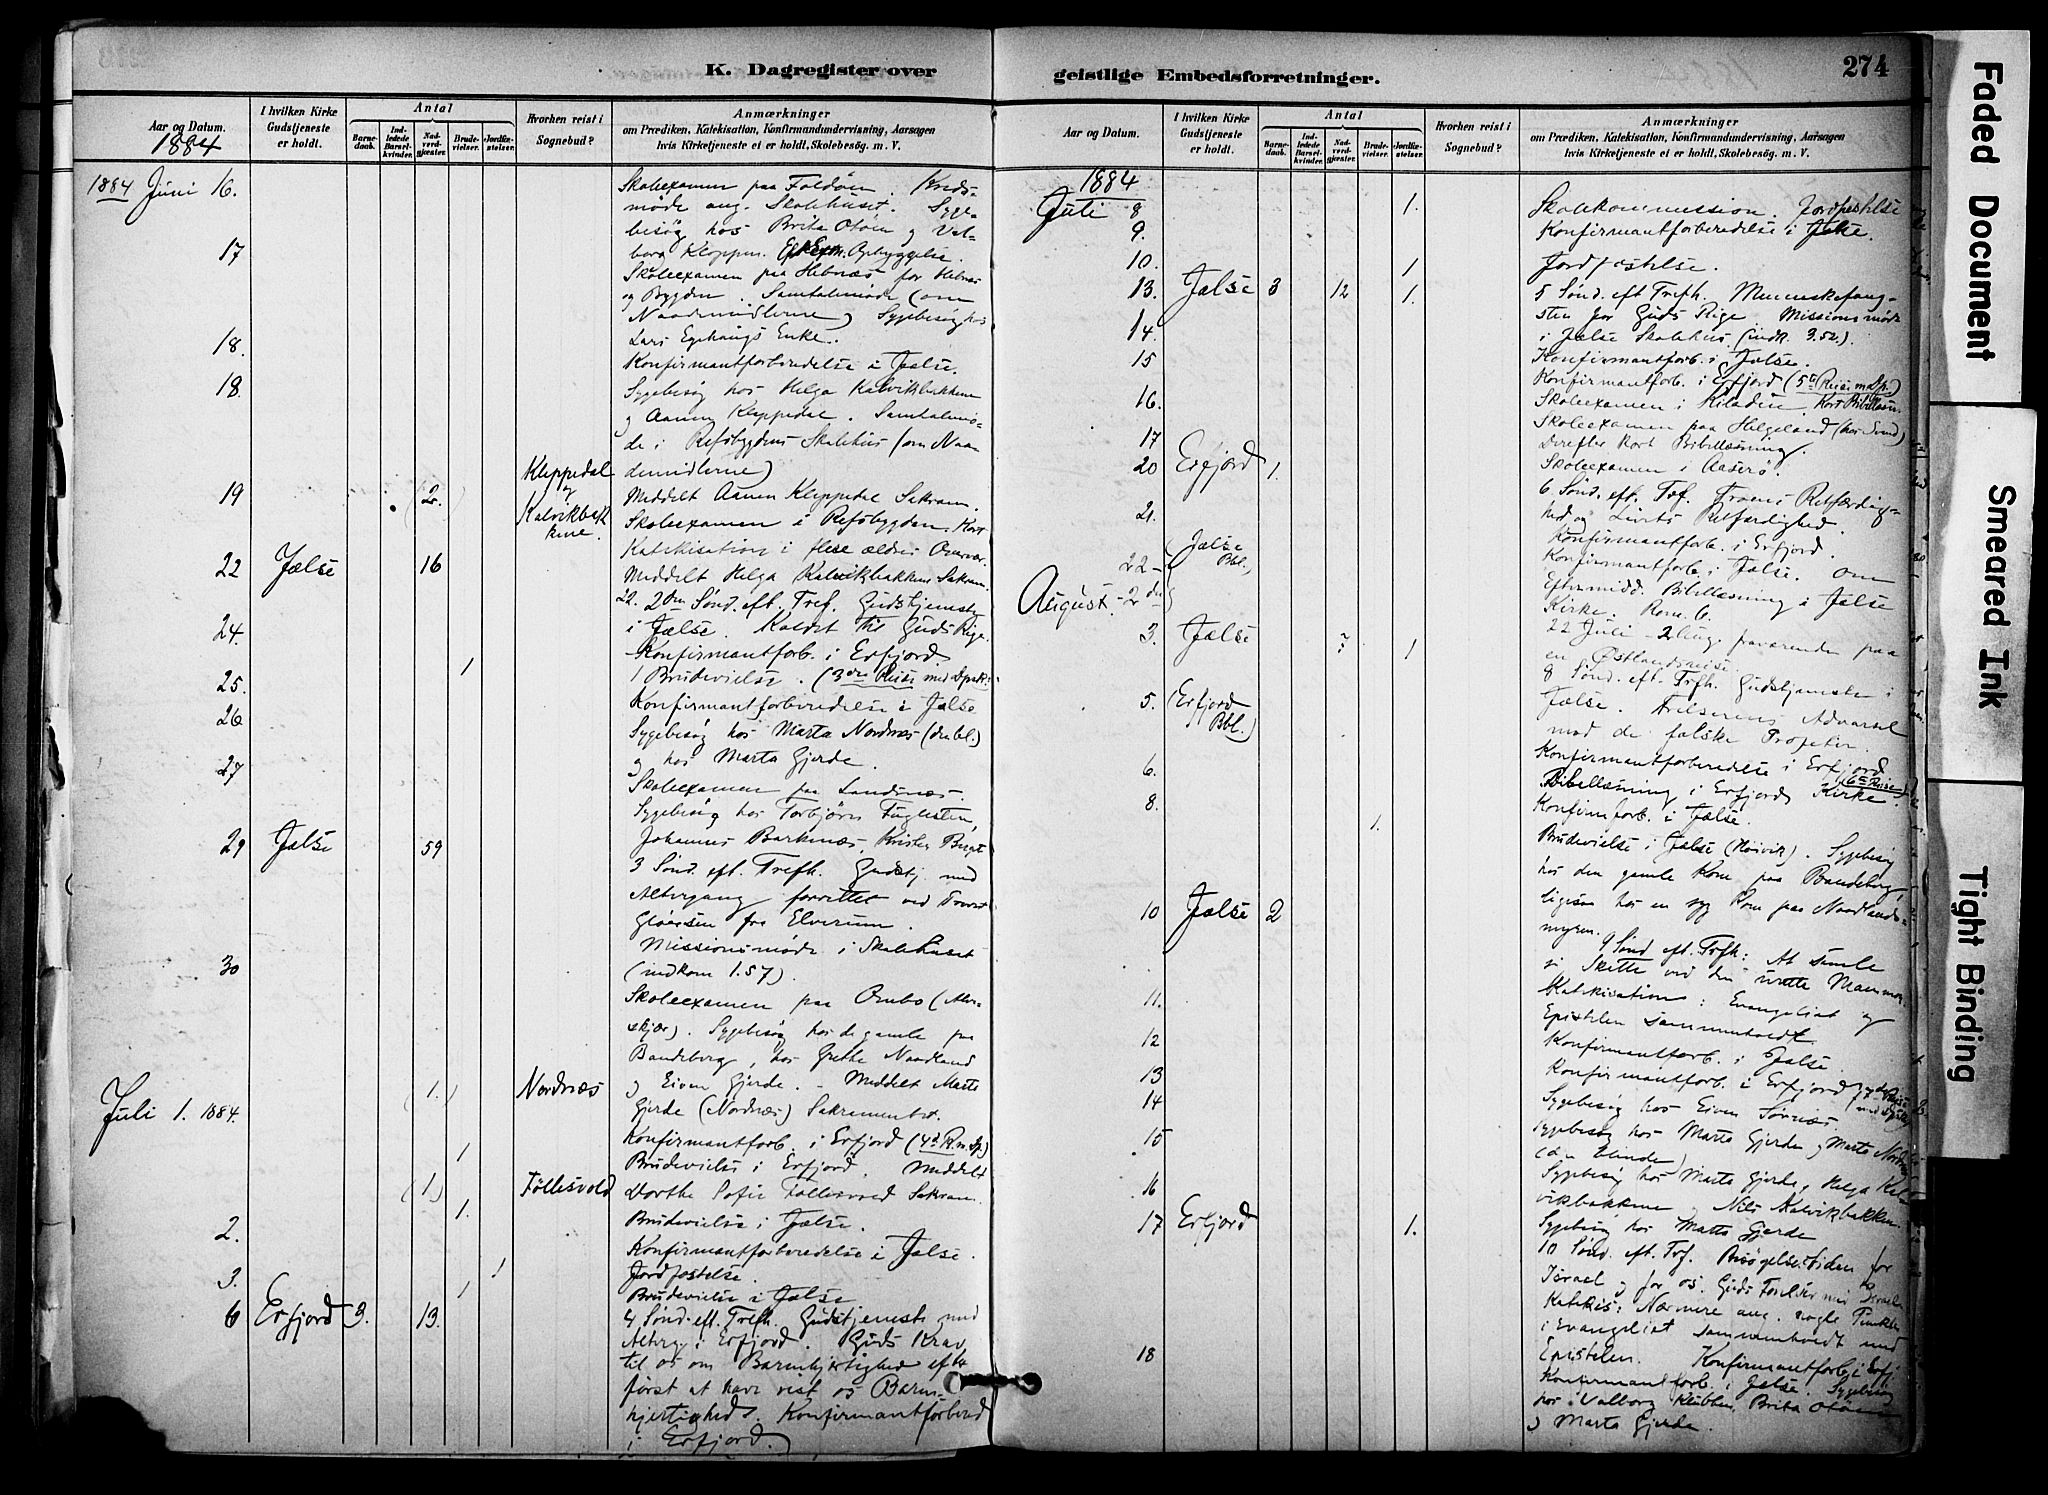 K. Dagregister over
geistlige Embedsforretninger.
274
Aar og Datum.
I hvilken Kirke Gudstjeneste er holdt.
Antal
Barnedaab.
Indledede Barselkvinder.
Nadverdgjester.
Brudevielser.
Jordfæstelser.
Hvorhen reist i Sognebud?
Anmærkninger
om Prædiken, Katekisation, Konfirmandundervisning, Aarsagen
hvis Kirketjeneste ei er holdt, Skolebesøg. m. V.
1884
1884 Juni 16.
Skoleexamen paa Foldöen. Kreds-
møde ang. Skolehuset. Syge-
besög hos Brita Otöen og Val-
borg Kloppen. Opbyggelse.
17
Skoleexamen paa Hebnæs for Hebnæs
og Bygden. Samtalemøde (om
Naademidlerne) Sygebesög hos
Lars Enke.
18.
Konfirmantforberedelse i Jælse.
18.
Sygebesög hos Helga Kalvikbakkene
og Aanen Kleppedal. Samtalemö-
de i Refsbygdens Skolehus (om Naa-
Kleppedal
demidlerne)
19
2.
og
Kalvikbak
kene.
Meddelt Aanen Kleppedal Sakram.
Skoleexamen i Refsbygden. Kort
Katekisation i flere ældres Overvær.
22 Jælse 16
Meddelt Helga Kalvikbakkene Sakram.
22. 2den Sönd. eft. Tref. Gudstjeneste
i Jælse. Kaldet til Guds Rige.
24.
Konfirmantforb. i Erfjord
1
1 Brudevielse. (3die Reise med
25.
Konfirmantforberedelse i Jælse
26
Sygebesög hos Marta Nordnæs (den bl.)
og hos Marta Gjerde.
27
Skoleexamen paa Sandsnæs.
Sygebesög hos Torbjörn
Johannes Barkenæs,
29 Jælse 59
3 Sönd. eft. Trefh. Gudstj. med
Altergang forrettet ved Provst
fra Elverum.
Missionsmöde i Skolehuset
30
(indkom 1.57).
Skoleexamen paa Ombo
Sygebesög hos de gamle paa
Bandeberg, hos Grethe Naadland
og Eiven Gjerde. - Meddelt Marta
Juli 1. 1884.
(1.)
Nordnæs
Gjerde (Nordnæs) Sakramentet.
Konfirmantforb. i Erfjord (4de R. m. Sp.)
1
Brudevielse i Erfjord. Meddelt
(1)
Föllesvold
Dorthe Sofie Föllesvold Sakram.
1.
Brudevielse i Jælse.
2.
Konfirmantforberedelse i Jælse.
1
Jordfæstelse.
3.
1
Brudevielse i Jælse
6 Erfjord 3. 13.
4 Sönd. eft. Trefh. Gudstjeneste med
Alterg. i Erfjord. Guds Krav
til os om Barmhjertighed efter
först at have vist os Barm-
hjertighed. Konfirmantforbered
i Erfjord.
Aar og Datum.
I hvilken Kirke Gudstjeneste er holdt.
Antal
Barnedaab.
Indledede Barselkvinder.
Nadverdgjester.
Brudevielser.
Jordfæstelser.
Hvorhen reist i Sognebud?
Anmærkninger
om Prædiken, Katekisation, Konfirmandundervisning, Aarsagen
hvis Kirketjeneste ei er holdt, Skolebesøg. m. V.
1884
Juli 8 1.
Skolekommission. Jordfæstelse
9.
Konfirmantforberedelse i Jælse.
10. 1
Jordfæstelse.
13. Jælse 3 12 1.
5 Sönd. eft Trefh. Menneskefang-
sten for Guds Rige. Missionsmöde
14.
i Jælse Skolehus (indk. 3.52.).
15
Konfirmantforb. i Jælse.
Konfirmantforb. i Erfjord (5te Reise m Sp.)
16.
Skoleexamen i Kiladen. Kort Bibellæsn.
Skoleexamen paa Helgeland
17
Derefter kort Bibellæsning.
20 Erfjord 1.
Skoleexamen i
6 Sönd. eft. Tref. Troens Retfærdig-
hed og Livets Retfærdighed.
21.
Konfirmantforb. i Erfjord.
Jælse
Bbl.
Konfirmantforb. i Jælse. Om
22 -
Eftermidd. Bibellæsning i Jælse
August - 2den
Kirke. Rom. 6.
3. Jælse 7 1
22 Juli - 2 Aug. fraværende paa
en Östlandsreise.
8 Sönd. eft. Trefh. Gudstjeneste i
5. (Erfjord
Bbl.)
Jælse. Frelserens Advarsel
mod de falske Profeter.
6.
Konfirmantforberedelse i Erfjord
(6te Reise)
Bibellæsning i Erfjord Kirke.
8.
Konfirmforb. i Jælse.
1.
Brudevielse i Jælse. Sygebesög
hos den gamle Kone paa Bandeberg
10 Jælse 2
ligesaa hos en syg Kone paa Naadlands-
myren.
9 Sönd. eft. Trefh: At samle
sig Skatte ved den urette Mammon.
11.
Katekisation: Evangeliet og
Epistelen sammenholdt.
12
Konfirmantforb. i Jælse.
13
Konfirmantforb. i Erfjord (7de Reise
14
Sygebesög hos Eiven
15
Sygebesög hos Marta Gjerde og Marta Nordnæs
(den blinde)
16
Sygebesög hos Marta Gjerde, Helga Kal-
vikbakkene og Nils Kalvikbakken
17 Erfjord 1.
Sygebesög hos Marta Gjerde
10 Sönd. eft. Tref. Besögelsestiden for
Israel og for os. Guds
Katekis: Nærmere ang. nogle Punkter
i Evangeliet sammenholdt med
18
Epistelen. Konfirmantforb. i Erfj.
Konfirmantforb. i Jælse. Sygebesög
hos Valborg Klubben, Brita Otöen
og Marta Gjerde.
Faded Document
Smeared Ink
Tight Binding